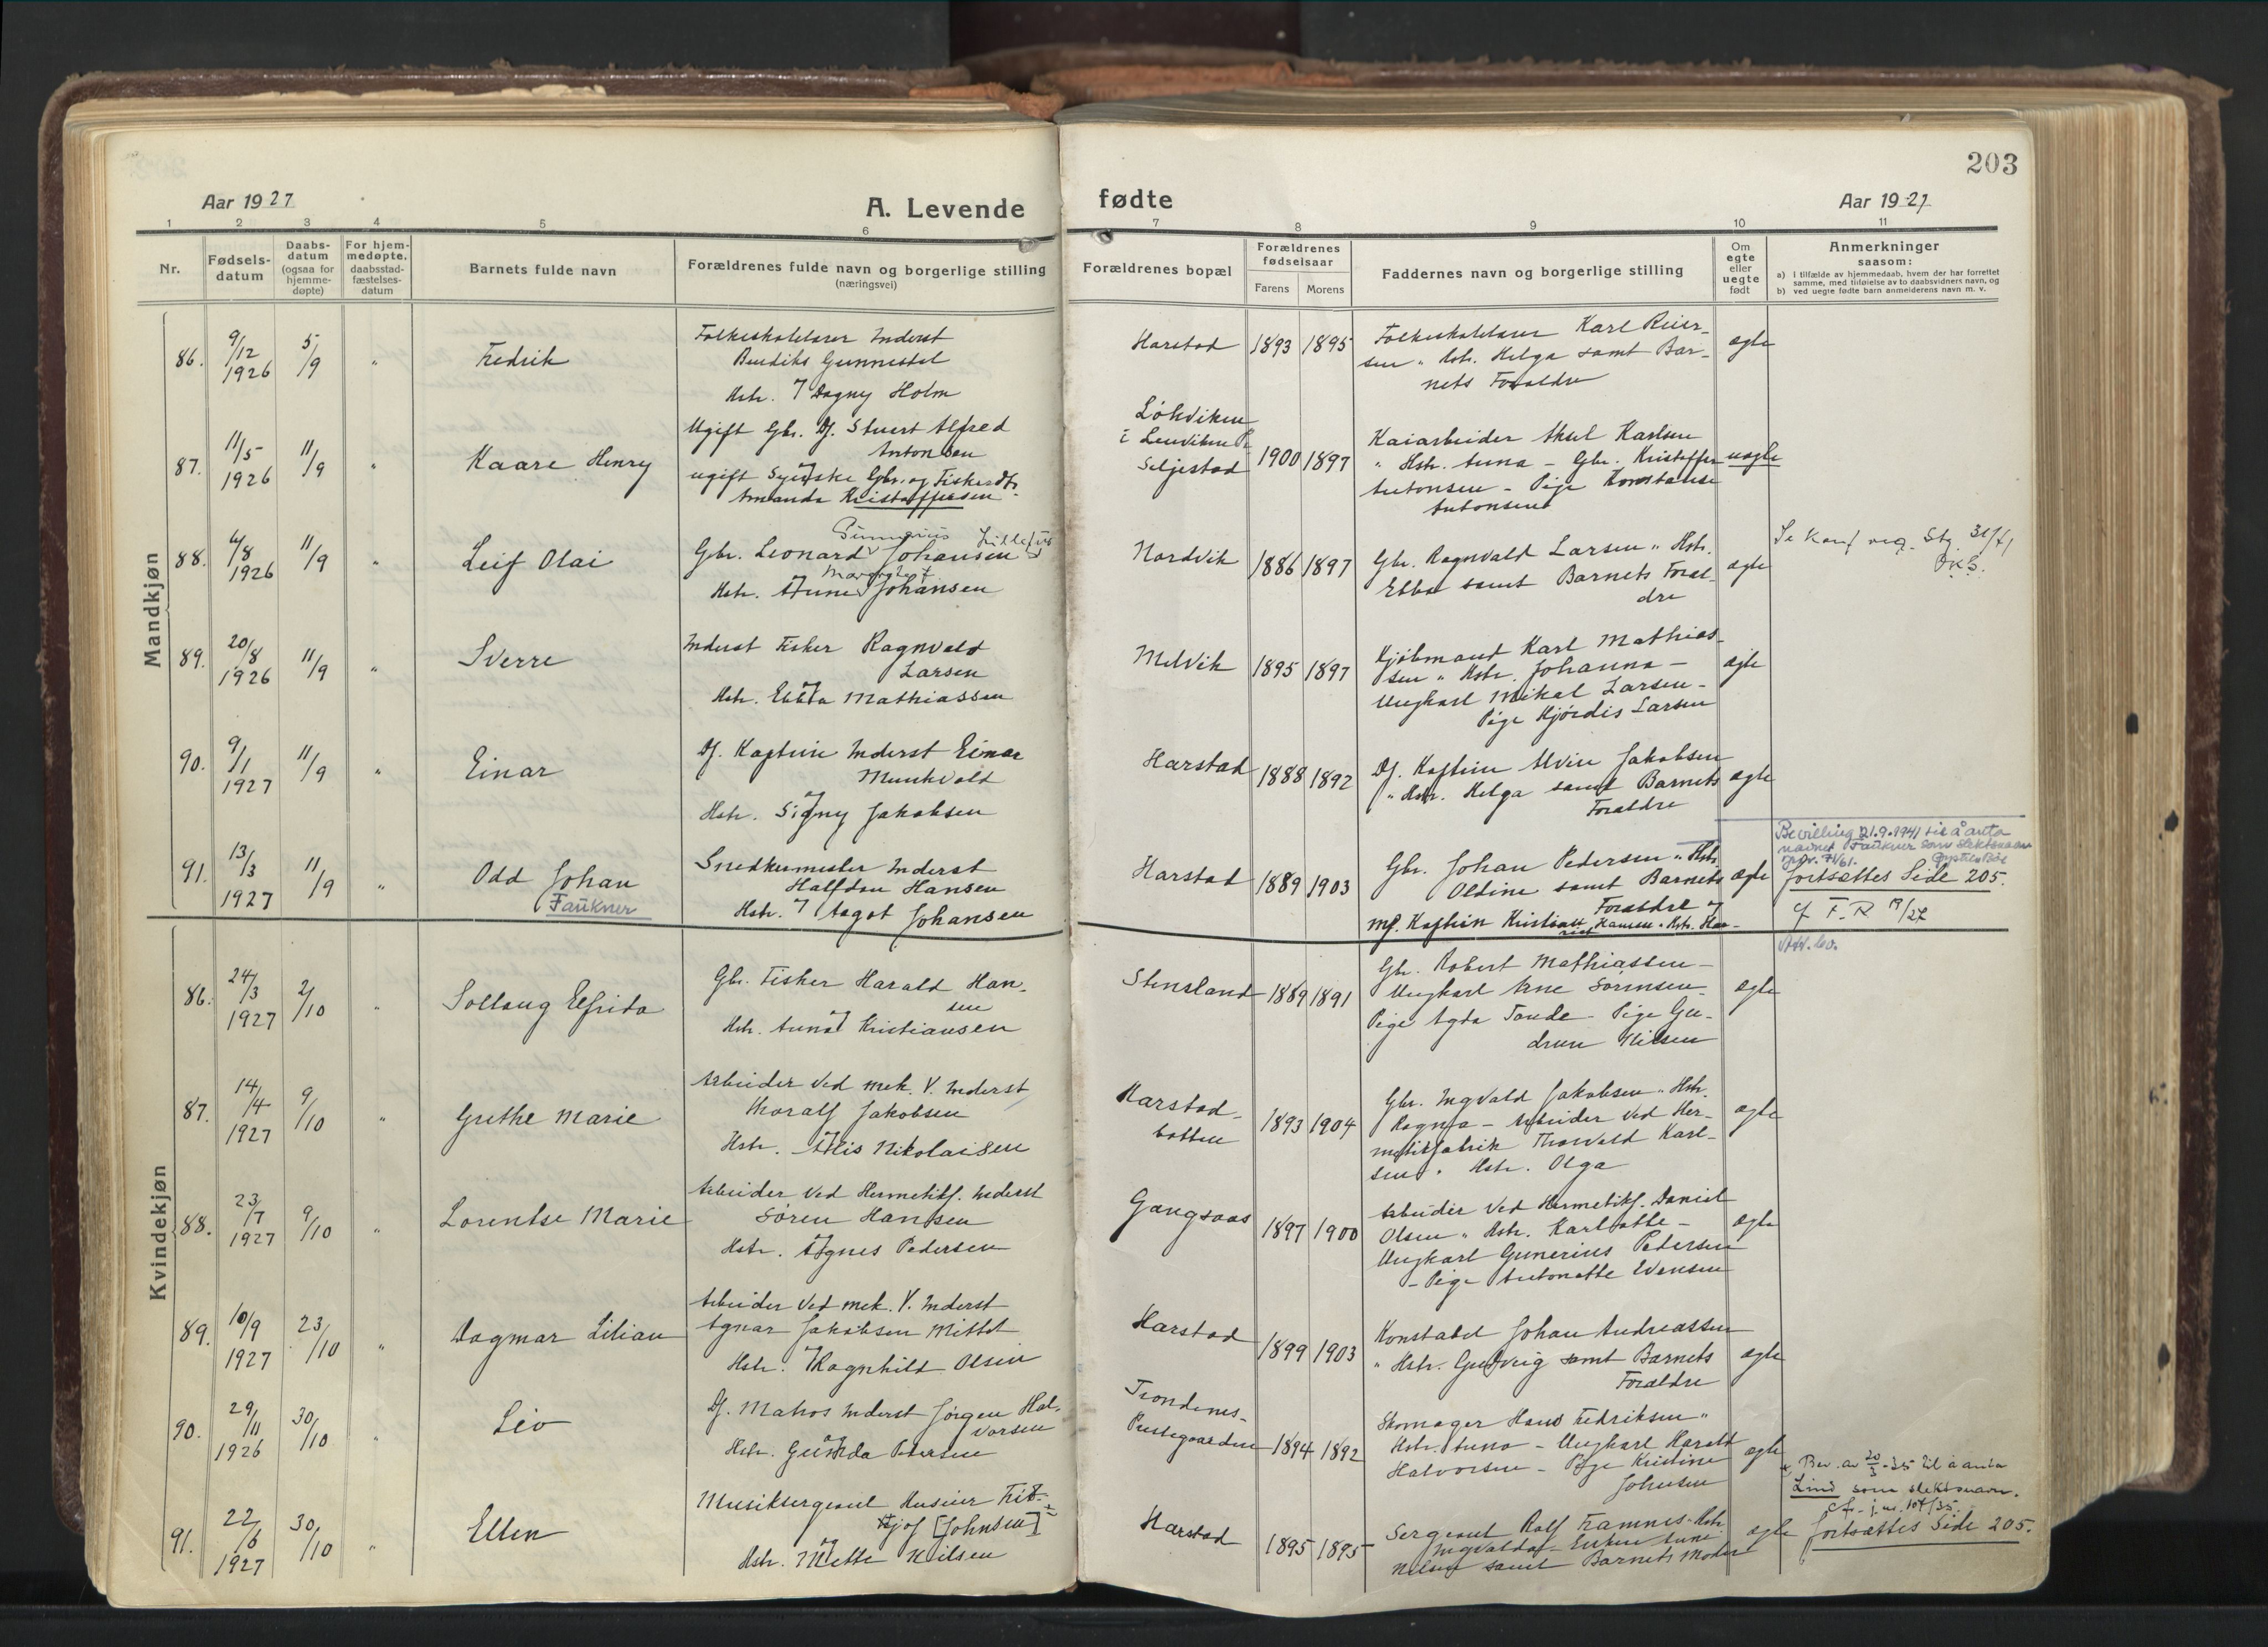 203
Aar 1927
A. Levende
fødte
Aar 1927
1 2 3 4 5 6 7 8 9 10 11
Nr.
Fødsels-
datum
Daabs-
datum
(ogsaa for
hjemme-
døpte)
For hjem-
medøpte.
daabsstad-
fæstelses-
datum
Barnets fulde navn
Forældrenes fulde navn og borgerlige stilling
(næringsvei)
Forældrenes bopæl
Forældrenes
fødselsaar
Farens Morens
Faddernes navn og borgerlige stilling
Om
egte
eller
uegte
født
Anmerkninger
saasom:
a) i tilfælde av hjemmedaab, hvem der har forrettet
samme, med tilføielse av to daabsvidners navn, og
b) ved uegte fødte barn anmelderens navn m. v.
Mandkjøn
86. 9/12 1926 5/9 " Fredrik
Folkeskolelærer Inderst
Bendiks Gunnestel
Hstr. Dagny Holm
Harstad 1893 1895
Folkeskolelærer Karl Reier-
sen " Hstr. Helga samt Bar-
nets Forældre
ægte
87. 11/5 1926 11/9 " Kaare Henry
Ugift Gbr. Df. Stuert Alfred
Antonsen
og
ugift Syerske Gbr. og Fiskerdtr.
Amanda Kristoffersen
Løkviken
i Lenviken P.
Seljestad
1900 1897
Kaiarbeider Aksel Karlsen
" Hstr. Anna - Gbr. Kristoffer
Antonsen - Pige Konstanse
Antonsen
uægte
88. 4/8 1926 11/9 " Leif Olai
Gunnarius
Gbr. Leonard Johansen
Margrethe
Hstr. Anne Johansen
Nordvik 1886 1897
Gbr. Ragnvald Larsen " Hstr.
Ebba samt Barnets Foræl-
dre
ægte
89. 20/8 1926 11/9 " Sverre
Inderst Fisker Ragnvald
Larsen
og
Hstr. Ebba Mathiassen
Melvik 1895 1897
Kjøbmand Karl Mathias-
sen " Hstr. Johanna -
Ungkarl Mikal Larsen -
Pige Hjørdis Larsen
ægte
90. 9/1 1927 11/9 " Einar
Df. Kaptein Inderst Einar
Munkvold
og
Hstr. Signy Jakobsen
Harstad 1888 1892
Df. Kaptein Alvin Jakobsen
" Hstr. Helga samt Barnets
Forældre
ægte
91. 13/3 1927 11/9 " Odd Johan
Faukner
Snedkermester Inderst
Halfdan Hansen
Hstr. Aagot Johansen
Harstad 1889 1903
Gbr. Johan Pedersen " Hstr.
Oldine samt Barnets
Forældre og
Df. Kaptein Kristian Hansen " Hstr. Har-
riet
ægte
Bevilling 21.9.1941 til å anta
navnet Faukner som slektsnavn
fortsættes Side 205.
cf F. R 19/27
Kvindekjøn
86. 24/3 1927 2/10 " Sollaug Elfrida
Gbr. Fisker Harald Han-
sen
og
Hstr. Anna Kristiansen
Stensland 1889 1891
Gbr. Robert Mathiassen -
Ungkarl Arne Sørensen -
Pige Agda Tande - Pige Gu-
drun Nilsen
ægte
87. 14/4 1927 9/10 " Grethe Marie
Arbeider ved mek. V. Inderst
Thoralf Jakobsen
Hstr. Alis Nikolaisen
Harstad-
botten
1893 1904
Gbr. Ingvald Jakobsen " Hstr.
Ragna - Arbeider ved Her-
metikfabrik Thorvald Karl-
sen " Hstr. Olga
ægte
88. 23/7 1927 9/10 " Lorentse Marie
Arbeider ved Hermetikf. Inderst
Søren Hansen
Hstr. Agnes Pedersen
Gangsaas 1897 1900
Arbeider ved Hermetikf. Daniel
Olsen " Hstr. Karlotte -
Ungkarl Gunerius Pedersen
- Pige Antonette Evensen
ægte
89. 10/9 1927 23/10 " Dagmar Lilian
Arbeider ved mek. V. Inderst
Agnar Jakobsen Mittet
Hstr. Ragnhild Olsen
Harstad 1899 1903
Konstabel Johan Andreassen
" Hstr. Gudveig samt Barnets
Forældre
ægte
90. 29/11 1926 30/10 " Liv
Df. Matros Inderst Jørgen Hal-
vorsen
og
Hstr. Gunda Petersen
Trondenes-
Prestegaarden
1894 1892
Skomager Hans Fredriksen "
Hstr. Anna - Ungkarl Harald
Halvorsen - Pige Kristine
Johnsen
ægte
91. 22/6 1927 30/10 " Ellen
Musiksergeant Huseier Frit-
hjof [Johnsen]
og
Hstr. Mette Nilsen
Harstad 1895 1895
Sergeant Rolf Framnes " Hstr.
Ingvalda - Enken Anne
Nilsen samt Barnets Moder
ægte
Bev. av 20/3-35 til å anta
Lind som slektsnavn.
cfr. j.nr. 107/35.
fortsættes Side 205.